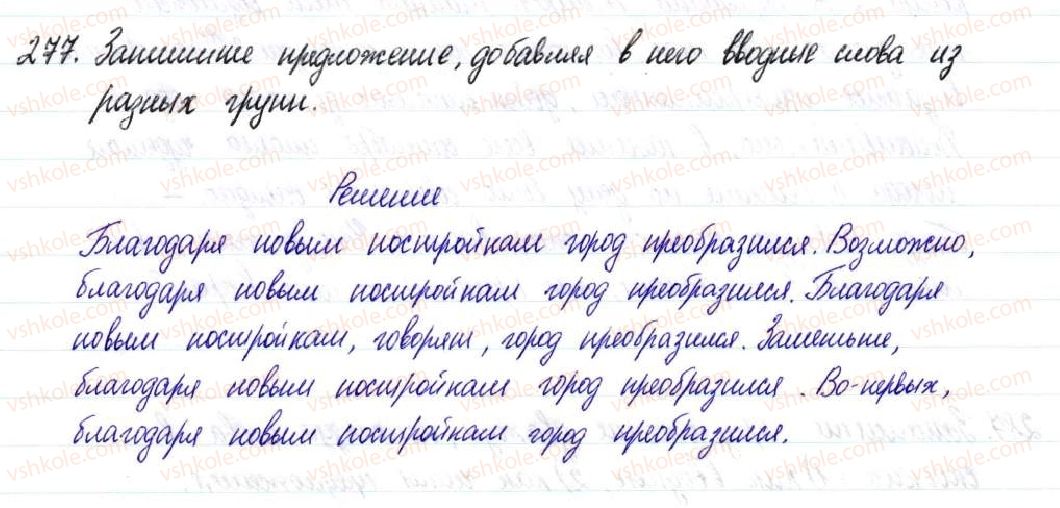 277. Запишите предложение, добавляя в него вводные слова из
разных групп.
Решение
Благодаря новым постройкам город преобразился. Возможно,
благодаря новым постройкам город преобразился. Благодаря
новым постройкам, говорят, город преобразился. Заметьте,
благодаря новым постройкам город преобразился. Во-первых,
благодаря новым постройкам город преобразился.